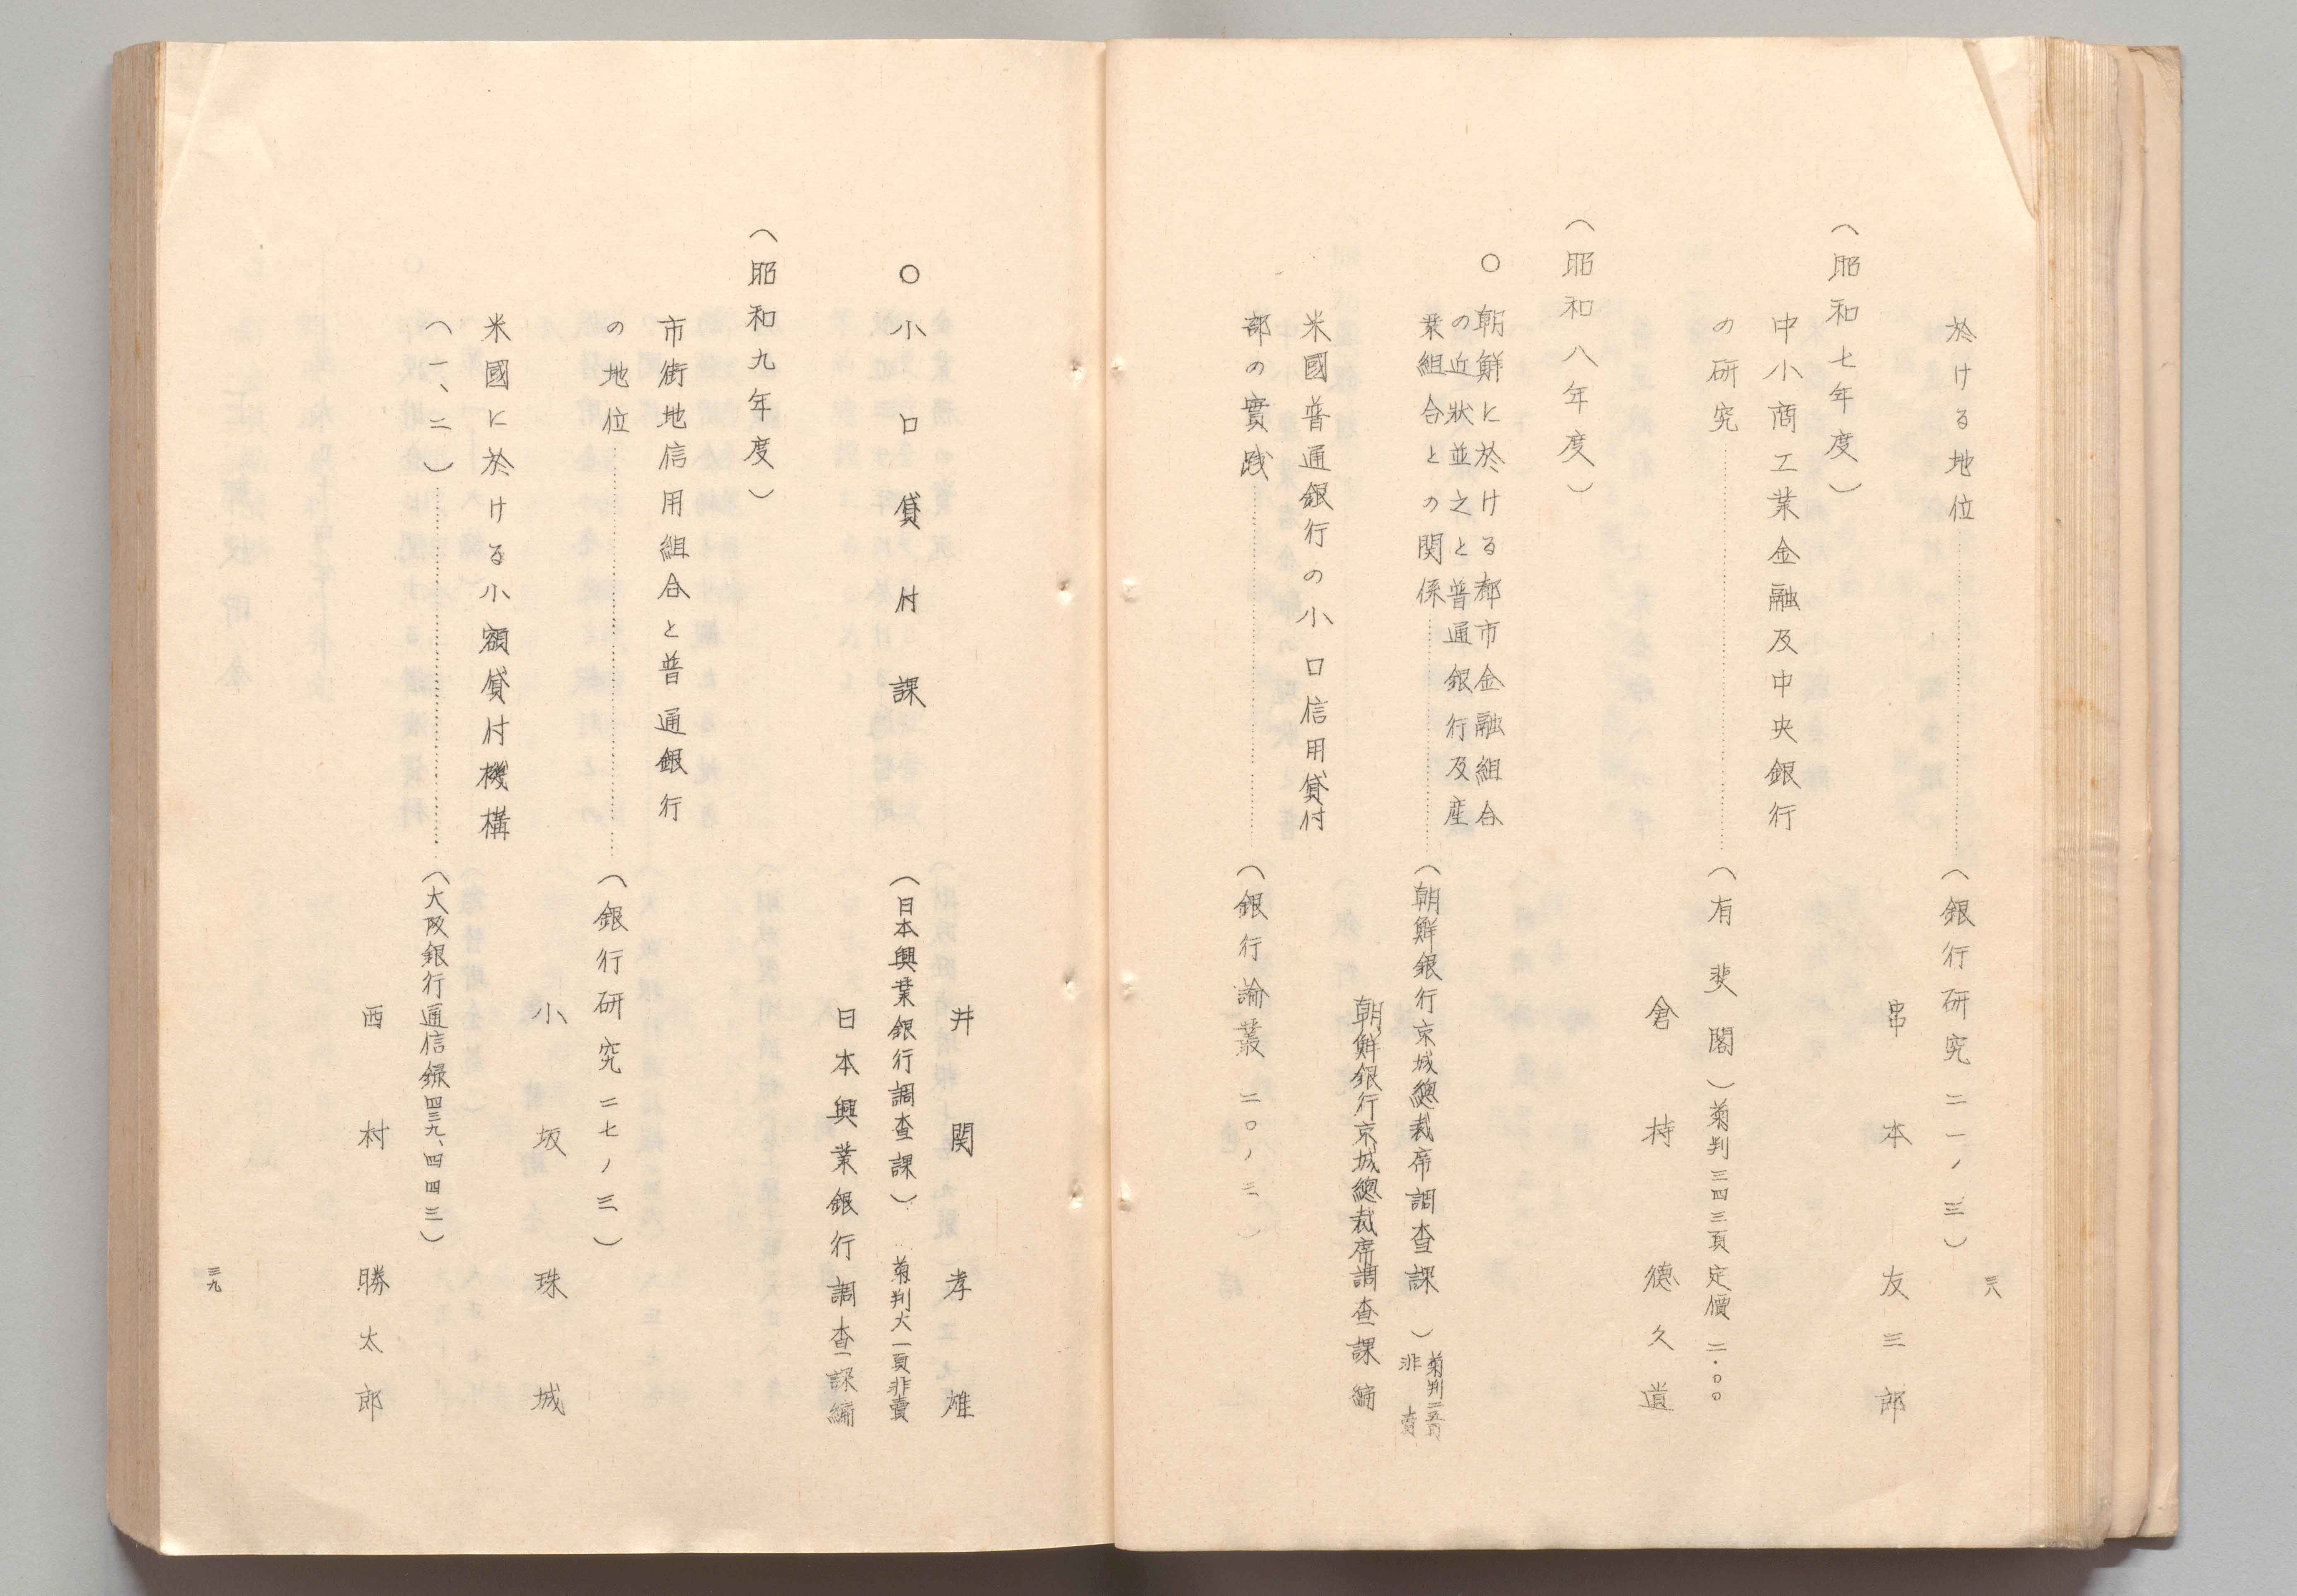 於ける地位……………………(銀行研究二一ノ三)
串本友三郎
(昭和七年度)
中小商工業金融及中央銀行
の研究……………………(有斐閣)菊判三四三頁定價二・〇〇
倉持徳久道
(昭和八年度)
〇朝鮮に於ける都市金融組合
の近狀並之と普通銀行及産
業組合との関係……………………(朝鮮銀行京城總裁席調查課)菊判
非賣
朝鮮銀行京城總裁席調查課編
米國普通銀行の小口信用貸付
部の實践……………………(銀行論叢二〇ノ三)
三八
井関孝雄
〇小口貸付課 (日本興業銀行調查課)菊判六一頁非賣
日本興業銀行調查課編
(昭和九年度)
市街地信用組合と普通銀行
の地位……………………(銀行研究二七ノ三)
小坂珠城
米國に於ける小額貸付機構
(一、二)……………………(大阪銀行通信録四三九、四四三)
西村勝太郎
三九